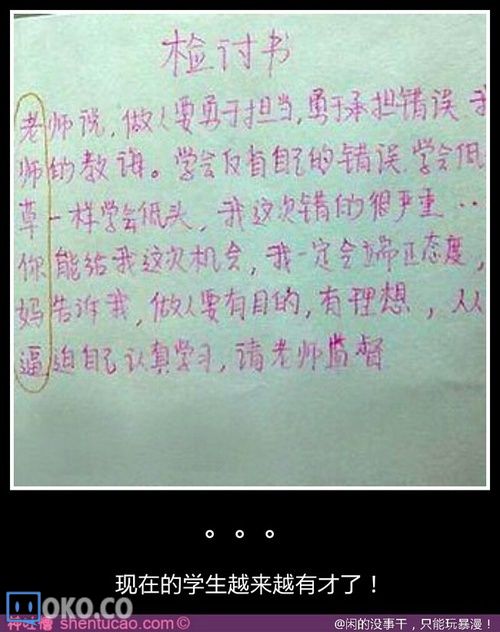 检讨书
老师说，做人要勇于担当，勇于承担错误 我
师的教诲。学会反省自己的错误 学会低
草一样学会低头，我这次错的很严重··
你能给我这次机会，我一定会端正态度，
妈告诉我，做人要有目的，有理想，从
逼迫自己认真学习，请老师监督
。。。
现在的学生越来越有才了！
OKO.CO
神吐槽 shentucao.com©
@闲的没事干，只能玩暴漫！